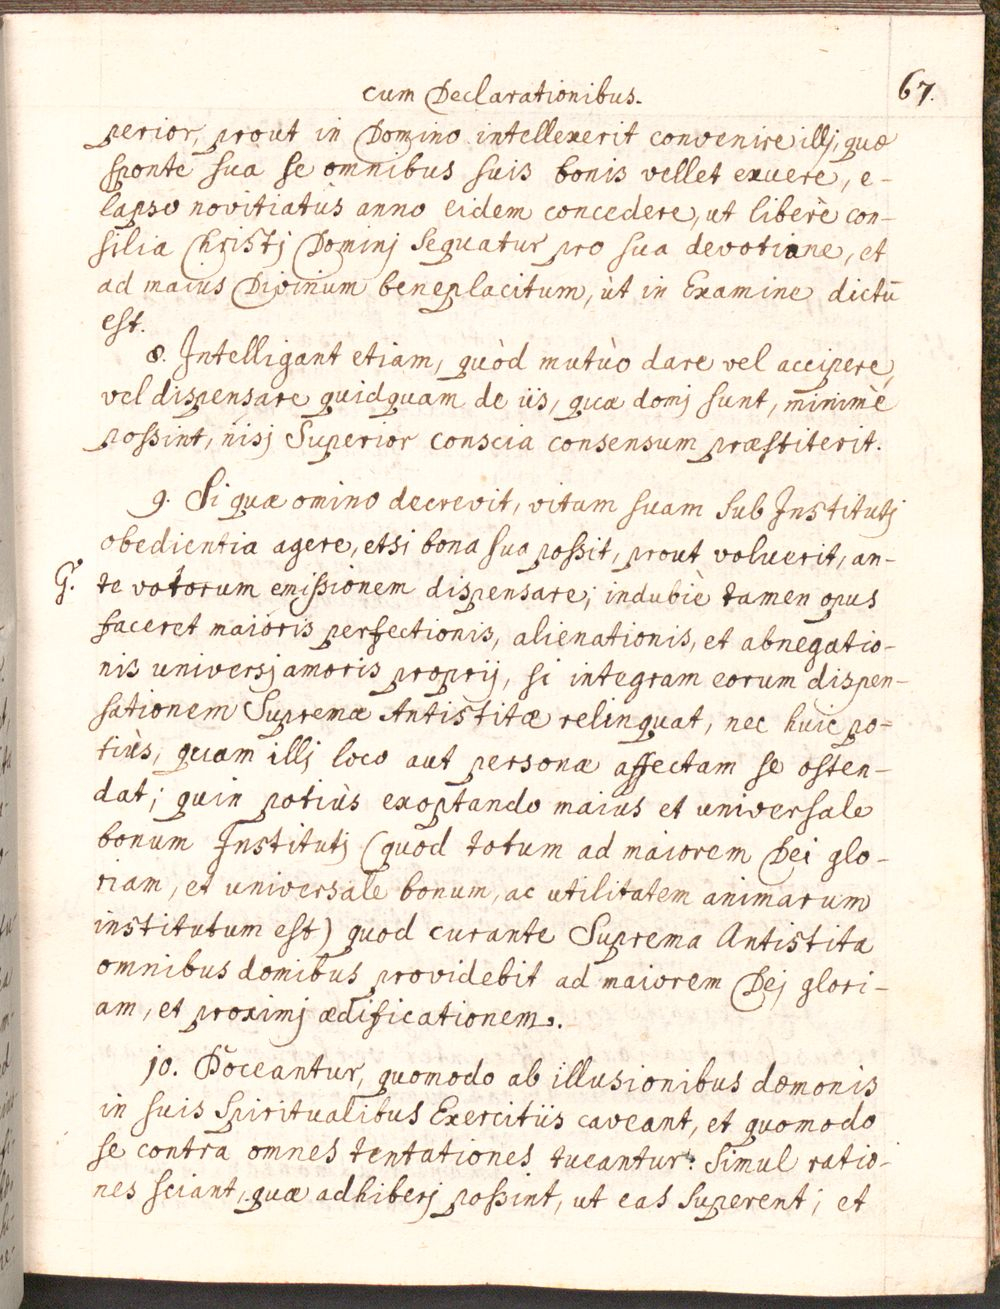 cum Declarationibus.
67.
perior, prout in Domino intellexerit convenire illj, quæ
sponte sua se omnibus suis bonis vellet exuere, e-
lapso novitiatùs anno eidem concedere, ut liberè con-
silia Christj Dominj sequatur pro sua devotione, et
ad maius Divinum beneplacitum, ùt in Examine dictū
est.
8. Intelligant etiam, quòd mutùo dare vel accipere,
vel dispensare quidquam de iis, quæ domj sunt, minimè
possint, nisj Superior conscia consensum præstiterit.
9. Si quæ omino decrevit, vitam suam sub Institutj
obedientia agere, etsi bona sua possit, prout voluerit, an-
G.
te votorum emissionem dispensare; indubiè tamen opus
faceret maioris perfectionis, alienationis, et abnegatio-
nis universj amoris proprij, si integram eorum dispen-
sationem Supremæ Antistitæ relinquat, nec huic po-
tiùs, quam illj loco aut personæ affectam se osten-
dat; quin potiùs exoptando maius et universale
bonum Institutj (quod totum ad maiorem Dei glo-
riam, et universale bonum, ac utilitatem animarum
institutum est) quod curante Suprema Antistita
omnibus domibus providebit ad maiorem Dej glori-
am, et proximj ædificationem.
10. Doceantur, quomodo ab illusionibus dæmonis
in suis Spiritualibus Exercitiis caveant, et quomodo
se contra omnes tentationes tueantur: Simul ratio-
nes sciant, quæ adhiberj possint, ut eas superent; et